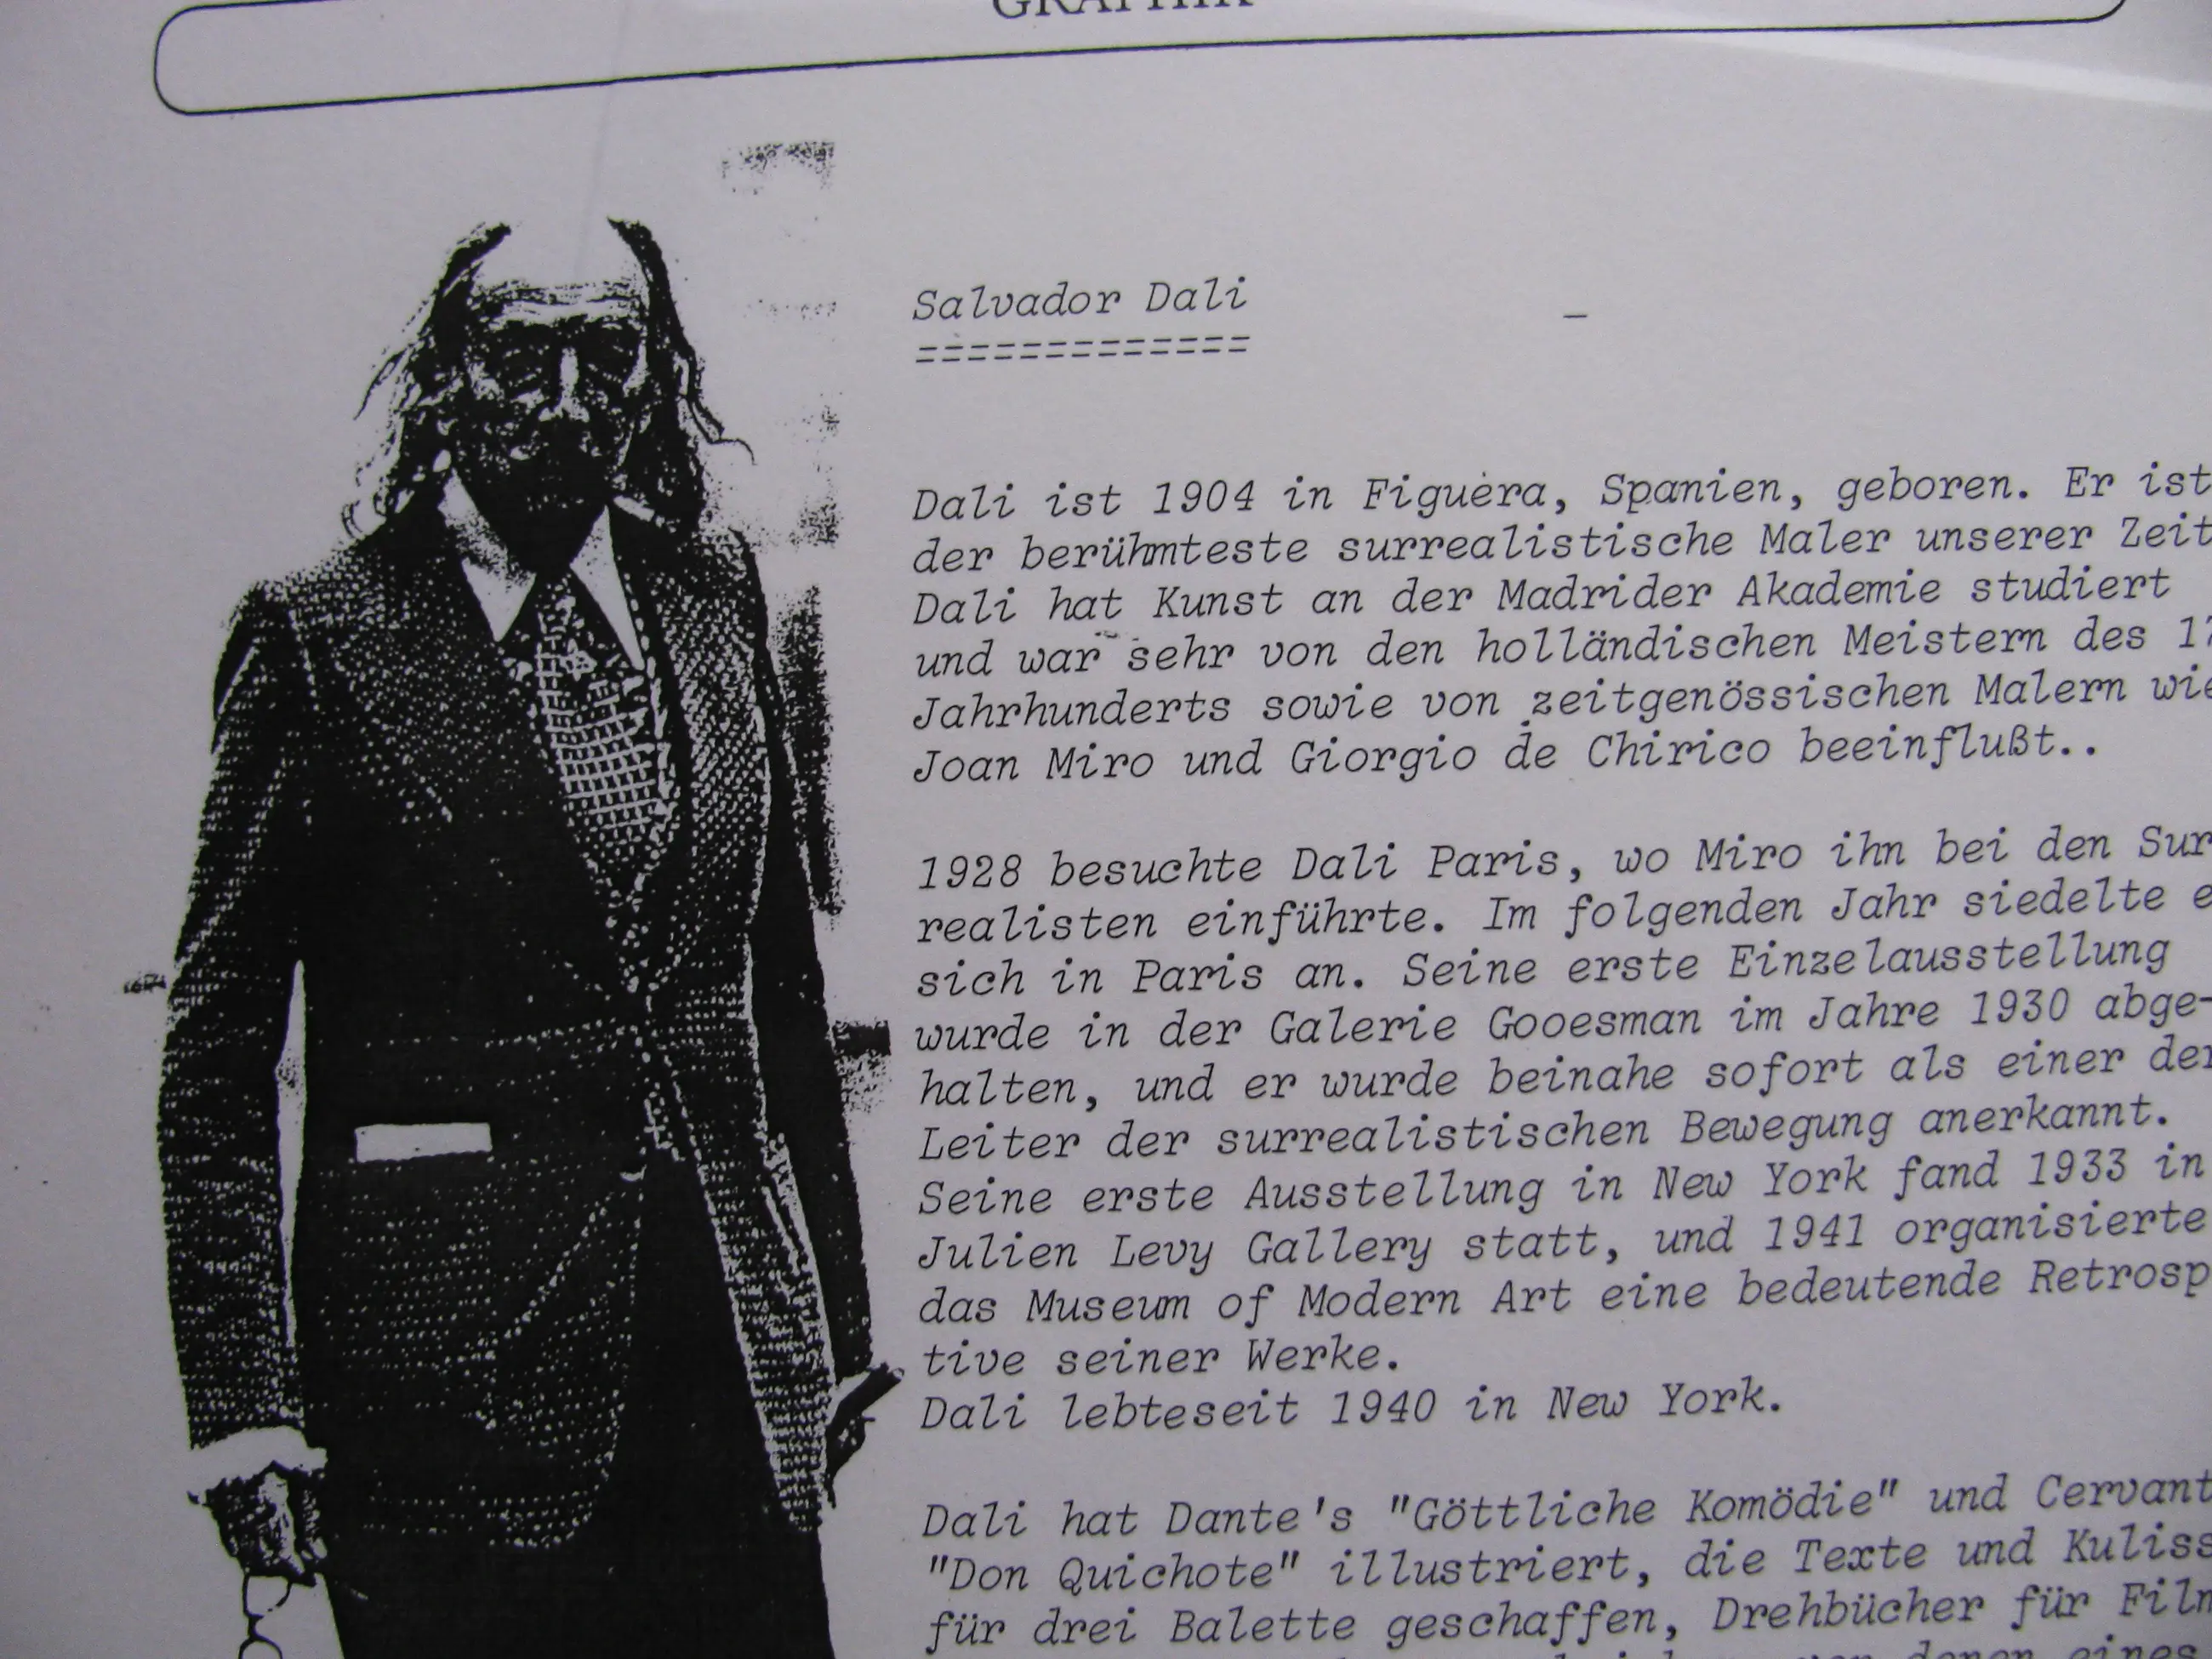 GRAPHIK
Salvador Dali
=============
Dali ist 1904 in Figuera, Spanien, geboren. Er ist
der berühmteste surrealistische Maler unserer Zeit
Dali hat Kunst an der Madrider Akademie studiert
und war sehr von den holländischen Meistern des 17
Jahrhunderts sowie von zeitgenössischen Malern wie
Joan Miro und Giorgio de Chirico beeinflußt..
1928 besuchte Dali Paris, wo Miro ihn bei den Sur
realisten einführte. Im folgenden Jahr siedelte e
sich in Paris an. Seine erste Einzelausstellung
wurde in der Galerie Gooesman im Jahre 1930 abge-
halten, und er wurde beinahe sofort als einer der
Leiter der surrealistischen Bewegung anerkannt.
Seine erste Ausstellung in New York fand 1933 in
Julien Levy Gallery statt, und 1941 organisierte
das Museum of Modern Art eine bedeutende Retrosp
tive seiner Werke.
Dali lebteseit 1940 in New York.
Dali hat Dante's "Göttliche Komödie" und Cervant
"Don Quichote" illustriert, die Texte und Kuliss
für drei Balette geschaffen, Drehbücher für Film
von denen eines